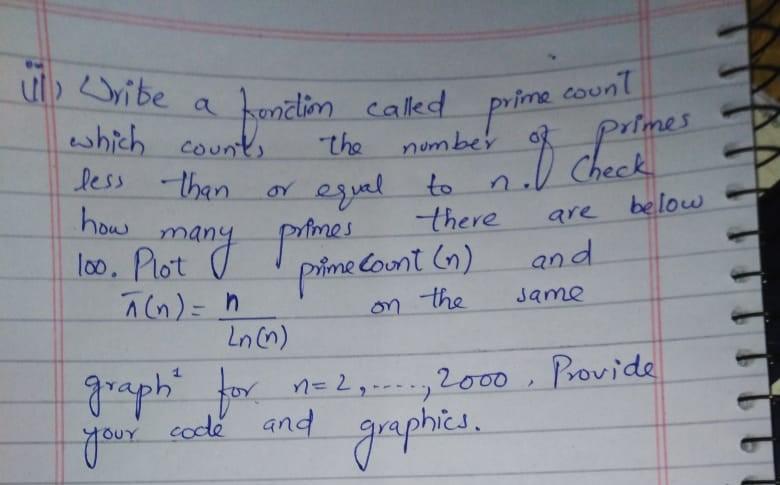 iii) Write a fonction called prime count
which counts the number of primes
less than or equal to n. Check
how many primes there are below
100. Plot primeCount (n) and
π(n) = n / Ln(n) on the same
graph¹ for n=2,.....,2000. Provide
your code and graphics.